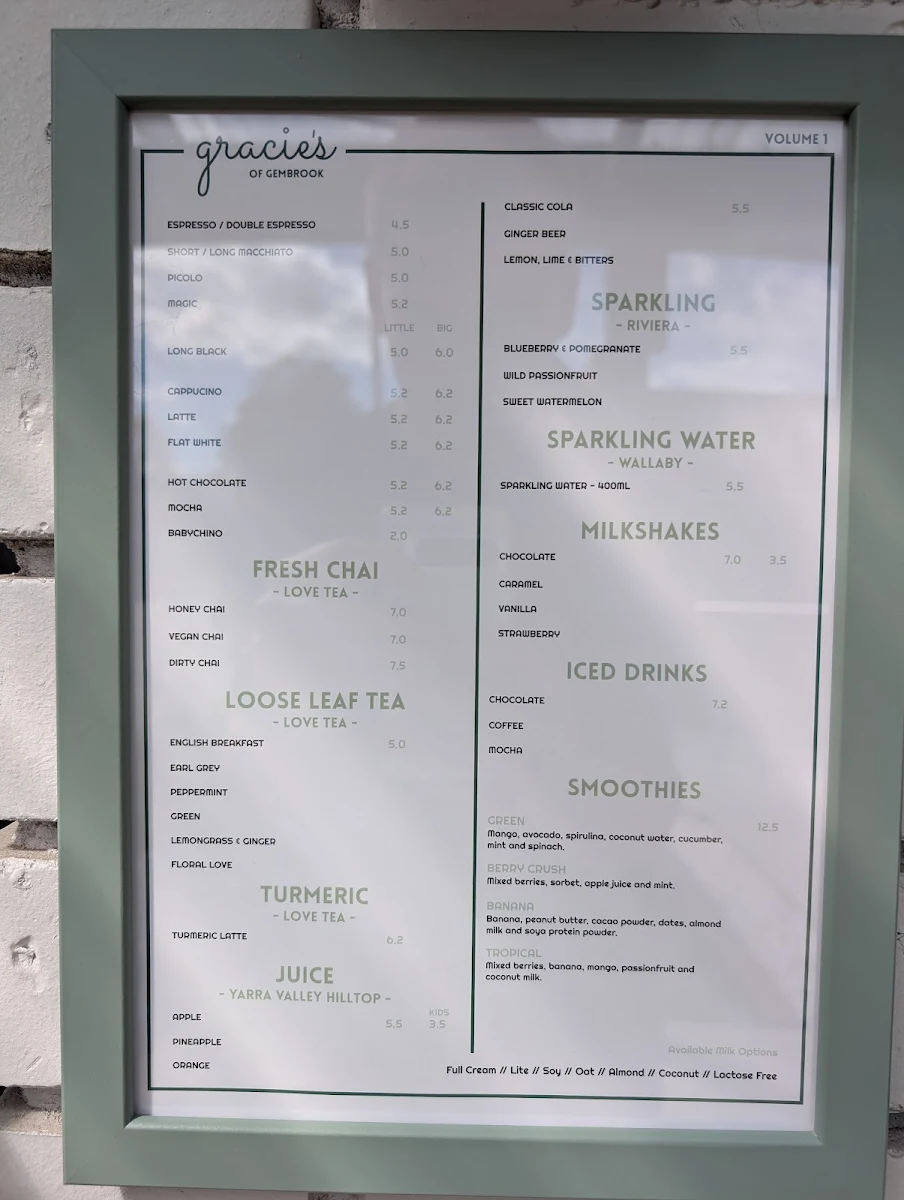 gracie's
OF GEMBROOK
VOLUME 1
ESPRESSO / DOUBLE ESPRESSO 4.5
SHORT / LONG MACCHIATO 5.0
PICOLO 5.0
MAGIC 5.2
LITTLE BIG
LONG BLACK 5.0 6.0
CAPPUCINO 5.2 6.2
LATTE 5.2 6.2
FLAT WHITE 5.2 6.2
HOT CHOCOLATE 5.2 6.2
MOCHA 5.2 6.2
BABYCHINO 2.0
FRESH CHAI
- LOVE TEA -
HONEY CHAI 7.0
VEGAN CHAI 7.0
DIRTY CHAI 7.5
LOOSE LEAF TEA
- LOVE TEA -
ENGLISH BREAKFAST 5.0
EARL GREY
PEPPERMINT
GREEN
LEMONGRASS & GINGER
FLORAL LOVE
TURMERIC
- LOVE TEA -
TURMERIC LATTE 6.2
JUICE
- YARRA VALLEY HILLTOP -
KIDS
APPLE 5.5 3.5
PINEAPPLE
ORANGE
CLASSIC COLA 5.5
GINGER BEER
LEMON, LIME & BITTERS
SPARKLING
- RIVIERA -
BLUEBERRY & POMEGRANATE 5.5
WILD PASSIONFRUIT
SWEET WATERMELON
SPARKLING WATER
- WALLABY -
SPARKLING WATER - 400ML 5.5
MILKSHAKES
CHOCOLATE 7.0 3.5
CARAMEL
VANILLA
STRAWBERRY
ICED DRINKS
CHOCOLATE 7.2
COFFEE
MOCHA
SMOOTHIES
GREEN 12.5
Mango, avocado, spirulina, coconut water, cucumber,
mint and spinach.
BERRY CRUSH
Mixed berries, sorbet, apple juice and mint.
BANANA
Banana, peanut butter, cacao powder, dates, almond
milk and soya protein powder.
TROPICAL
Mixed berries, banana, mango, passionfruit and
coconut milk.
Available Milk Options
Full Cream // Lite // Soy // Oat // Almond // Coconut // Lactose Free